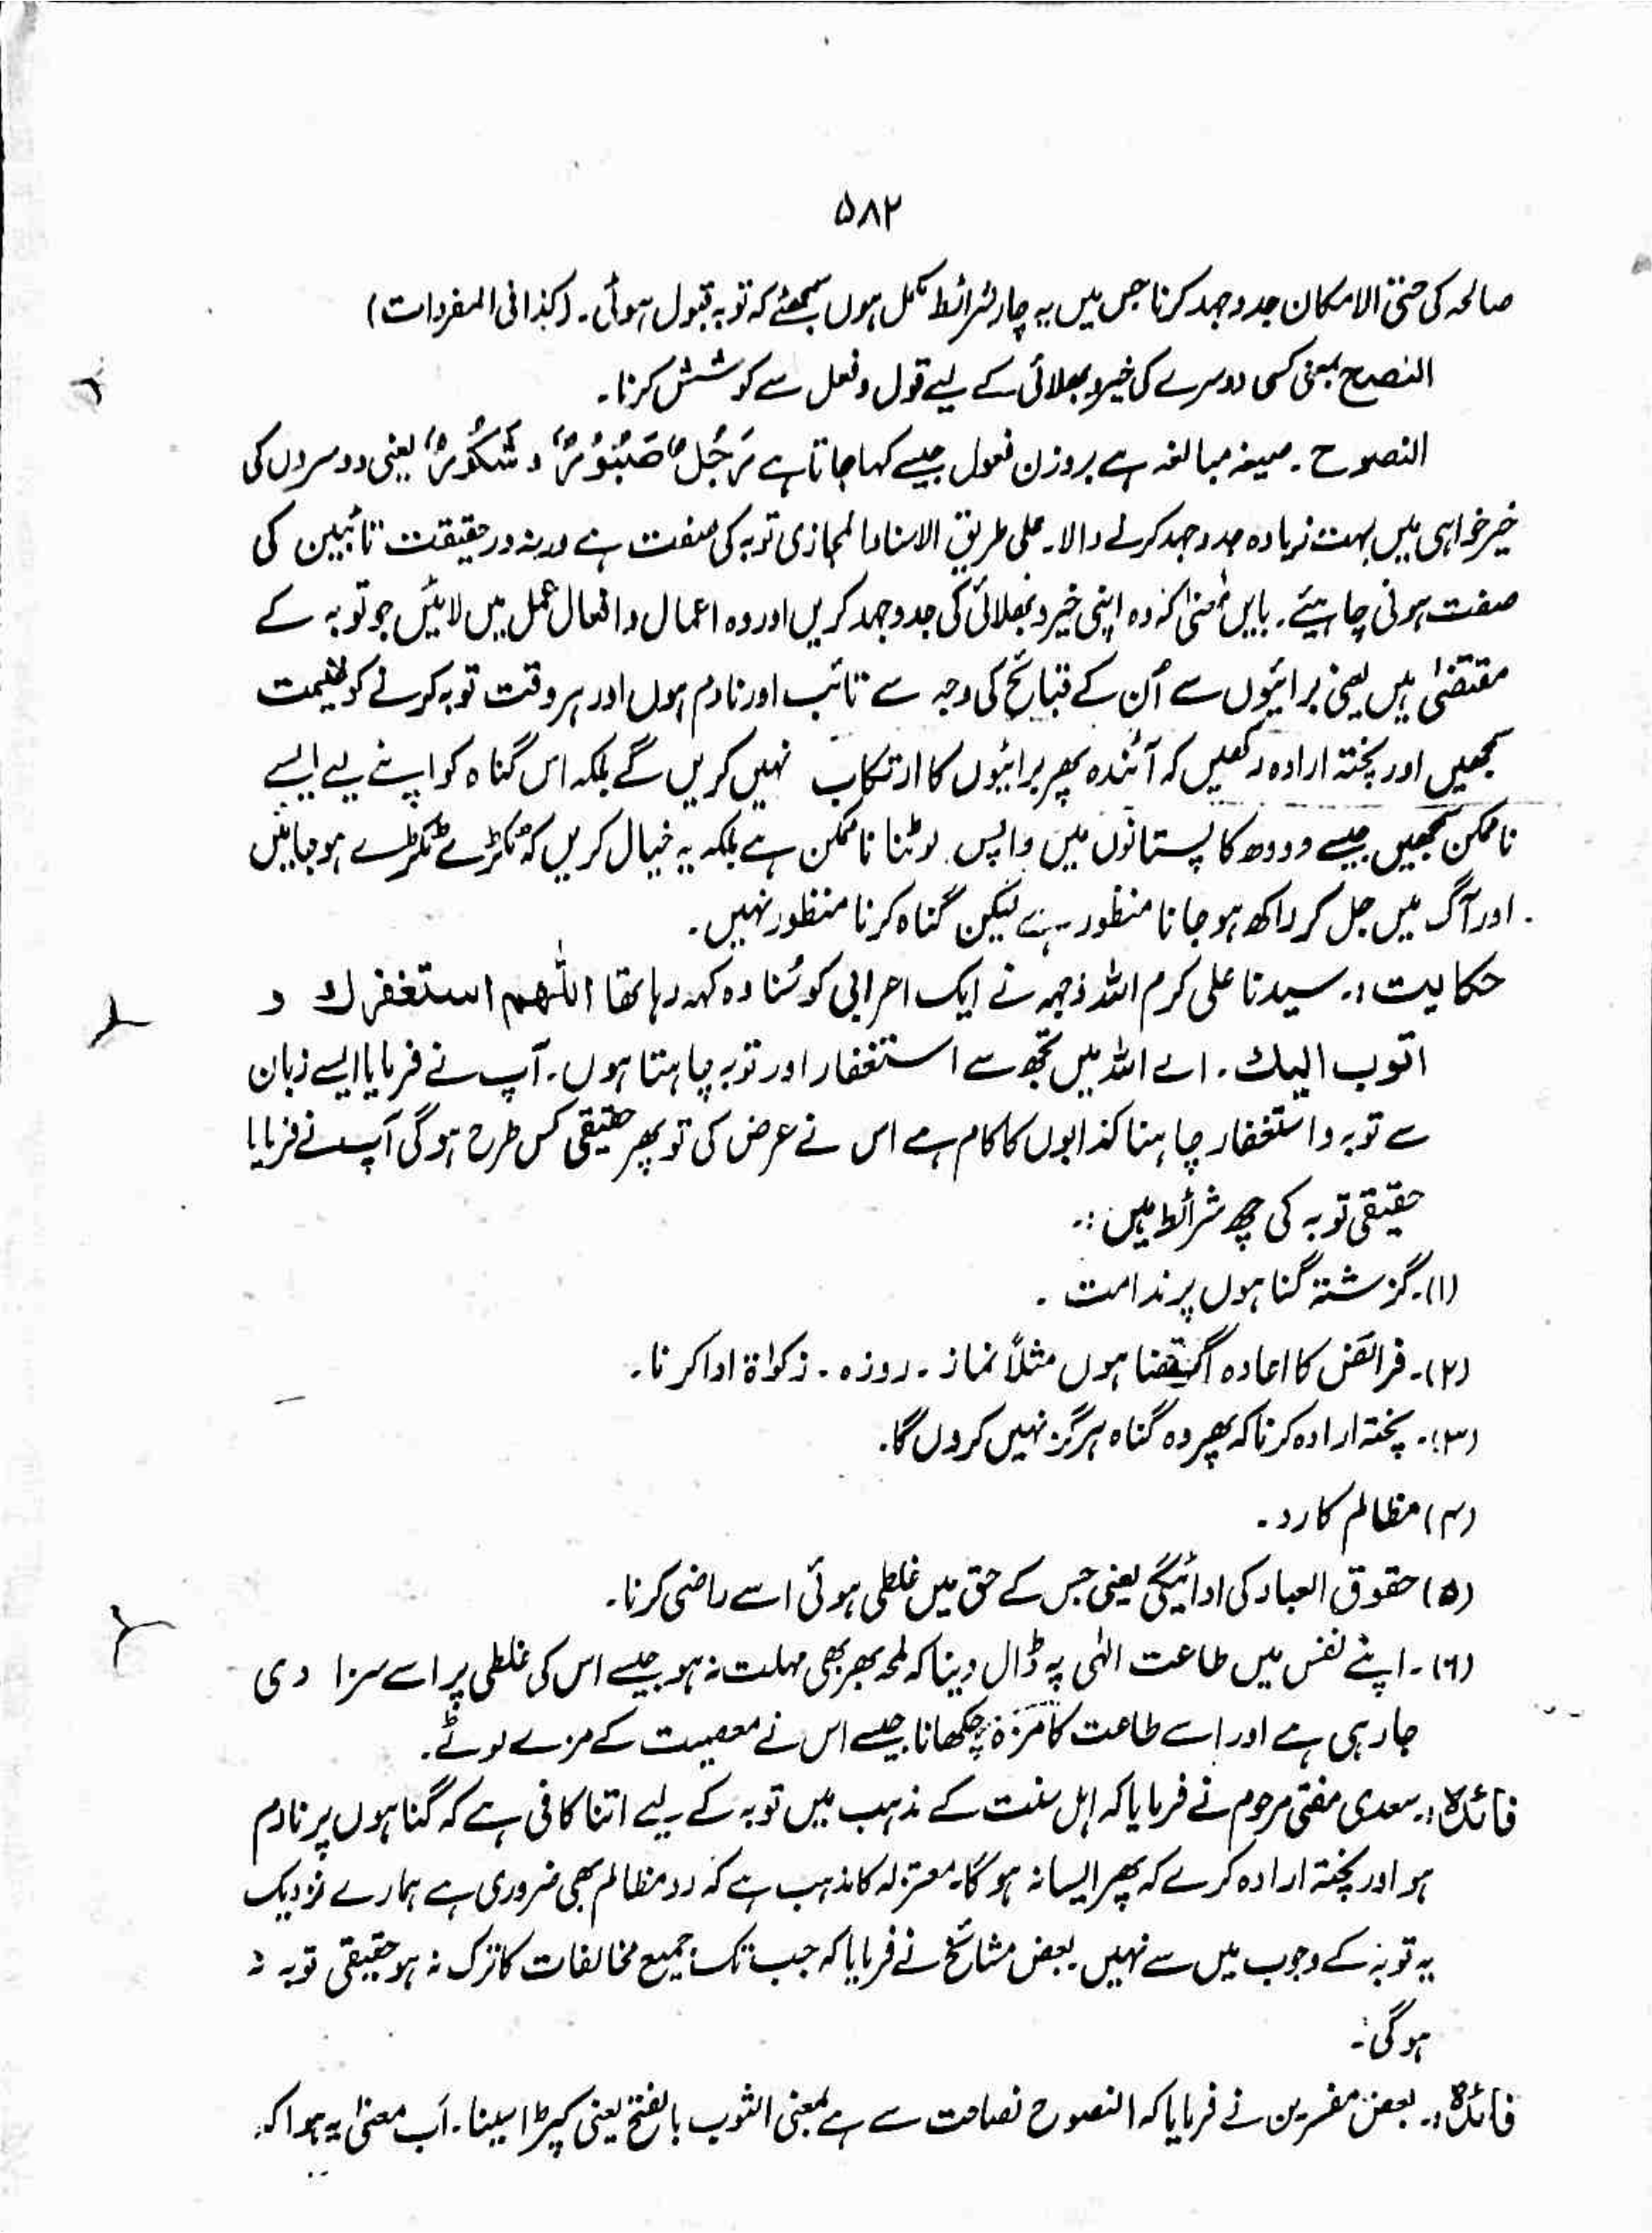 ۵۸۲
صالحہ کی حتی الامکان جدوجہد کرنا جس میں یہ چار شرائط مکمل ہوں سمجھئے کہ توبہ قبول ہوئی۔ (کذا فی المفردات)
النصح بمعنی کسی دوسرے کی خیر و بھلائی کے لیے قول و فعل سے کوشش کرنا۔
النصوح۔ صیغہ مبالغہ ہے بروزن فعول جیسے کہا جاتا ہے رَجُلٌ صَبُوْرٌ و شَكُوْرٌ یعنی دوسروں کی
خیرخواہی میں بہت زیادہ جدوجہد کرنے والا۔ علی طریق الاسناد المجازی توبہ کی صفت ہے ورنہ درحقیقت تائبین کی
صفت ہونی چاہیئے۔ بایں معنیٰ کہ وہ اپنی خیر و بھلائی کی جدوجہد کریں اور وہ اعمال و افعال عمل میں لائیں جو توبہ کے
مقتضیٰ ہیں یعنی برائیوں سے اُن کے قبائح کی وجہ سے تائب اور نادم ہوں اور ہر وقت توبہ کرنے کو غنیمت
سمجھیں اور پختہ ارادہ رکھیں کہ آئندہ پھر برائیوں کا ارتکاب نہیں کریں گے بلکہ اس گناہ کو اپنے لیے ایسے
ناممکن سمجھیں جیسے دودھ کا پستانوں میں واپس لوٹنا ناممکن ہے بلکہ یہ خیال کریں کہ ٹکڑے ٹکڑے ہو جائیں
اور آگ میں جل کر راکھ ہو جانا منظور ہے لیکن گناہ کرنا منظور نہیں۔
حکایت :۔ سیدنا علی کرم اللہ وجہہ نے ایک اعرابی کو سُنا وہ کہہ رہا تھا اللّٰھم استغفرك و
اتوب الیك۔ اے اللہ میں تجھ سے استغفار اور توبہ چاہتا ہوں۔ آپ نے فرمایا ایسے زبان
سے توبہ و استغفار چاہنا کذابوں کا کام ہے اس نے عرض کی تو پھر حقیقی کس طرح ہوگی آپ نے فرمایا
حقیقی توبہ کی چھ شرائط ہیں :۔
(۱)۔ گزشتہ گناہوں پر ندامت ۔
(۲)۔ فرائض کا اعادہ اگر قضا ہوں مثلاً نماز ۔ روزہ ۔ زکوٰۃ ادا کرنا۔
(۳)۔ پختہ ارادہ کرنا کہ پھر وہ گناہ ہرگز نہیں کروں گا۔
(۴) مظالم کا رد ۔
(۵) حقوق العباد کی ادائیگی یعنی جس کے حق میں غلطی ہوئی اسے راضی کرنا۔
(۶)۔ اپنے نفس میں طاعت الٰہی پہ ڈال دینا کہ لمحہ بھر بھی مہلت نہ ہو جیسے اس کی غلطی پر اسے سزا دی
جا رہی ہے اور اسے طاعت کا مزہ چکھانا جیسے اس نے معصیت کے مزے لوٹے۔
فائدہ :۔ سعدی مفتی مرحوم نے فرمایا کہ اہل سنت کے مذہب میں توبہ کے لیے اتنا کافی ہے کہ گناہوں پر نادم
ہو اور پختہ ارادہ کرے کہ پھر ایسا نہ ہوگا۔ معتزلہ کا مذہب ہے کہ رد مظالم بھی ضروری ہے ہمارے نزدیک
یہ توبہ کے وجوب میں سے نہیں۔ بعض مشائخ نے فرمایا کہ جب تک جمیع مخالفات کا ترک نہ ہو حقیقی توبہ نہ
ہوگی۔
فائدہ :۔ بعض مفسرین نے فرمایا کہ النصوح نصاحت سے ہے بمعنی الثوب بالفتح یعنی کپڑا سینا۔ اَب معنیٰ یہ ہوا کہ